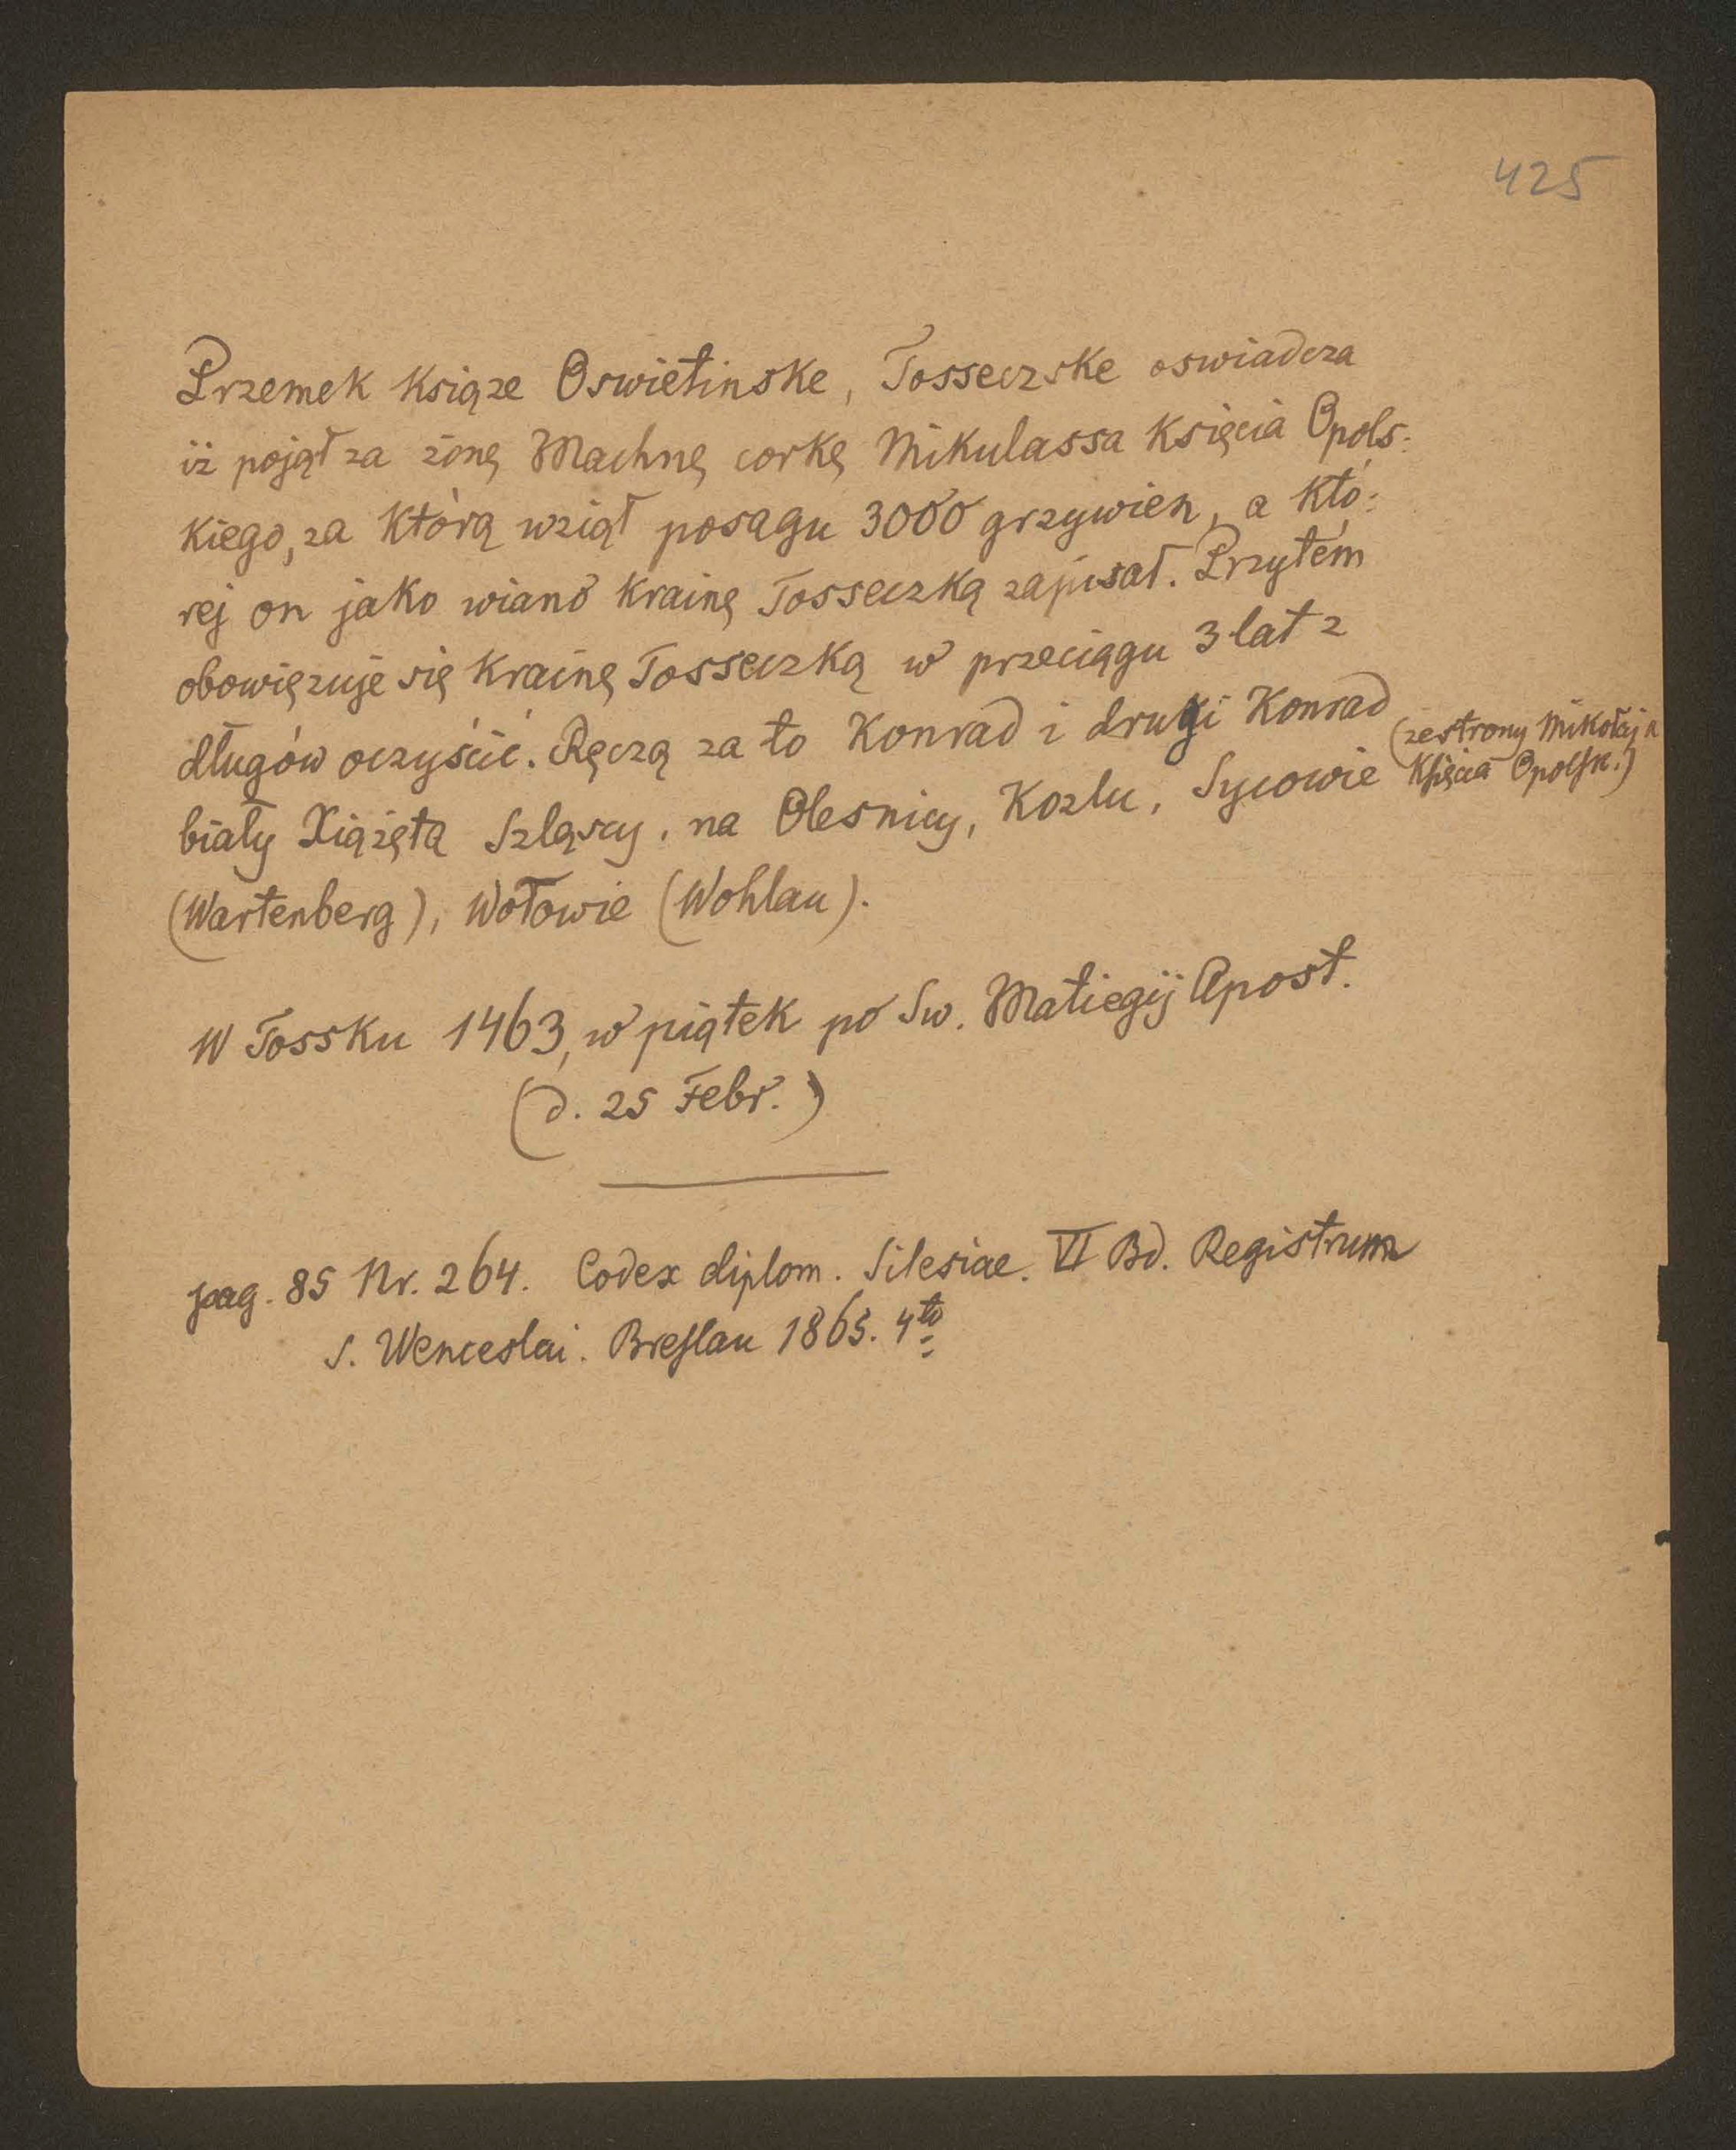 425
Przemek Książe Oswietinske, Tosseczske oswiadcza
iż pojął za żonę Machnę corkę Mikulassa Księcia Opols:
kiego, za którą wziął posagu 3000 grzywien, a któ:
rej on jako wiano Krainę Tosseczką zapisał. Przytém
obowięzuje się Krainę Tosseczką w przeciągu 3 lat z
długów oczyścić. Ręczą za to Konrad i drugi Konrad
(ze strony Mikołaja
biały Xiążęta Szląscy, na Olesnicy, Kozlu, Sycowie
Księcia Opolsk.)
(Wartenberg), Wołowie (Wohlau).
W Tossku 1463, w piątek po Sw. Matiegij Apost.
(d. 25 Febr.)
pag. 85 Nr. 264. Codex diplom. Silesiae. VI Bd. Registrum
S. Wenceslai. Breslau 1865. 4to